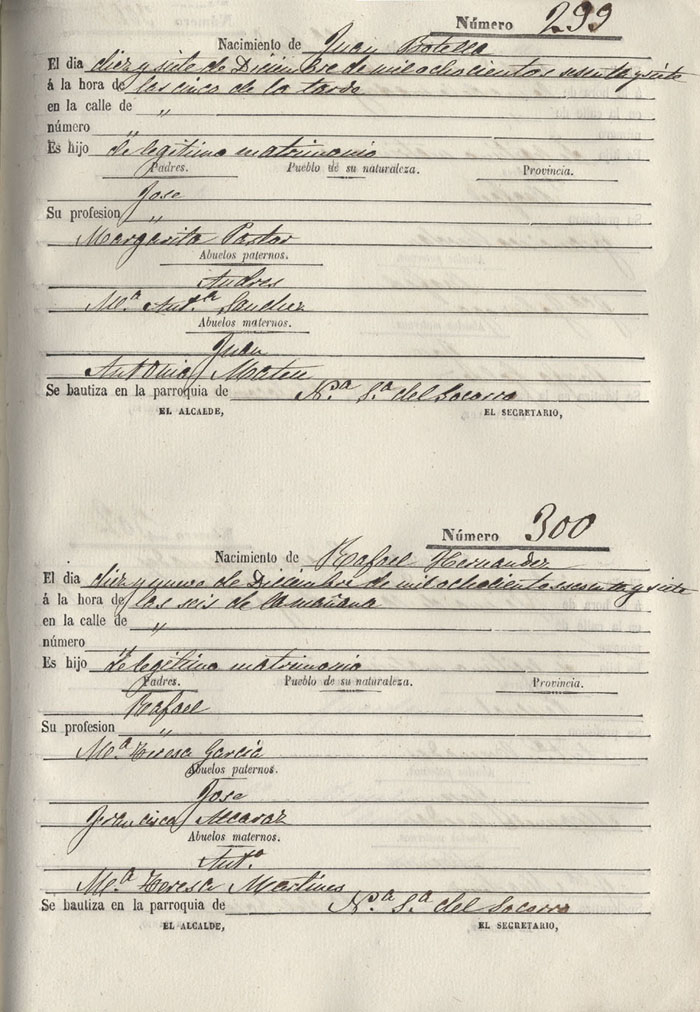 Número 299
Nacimiento de Juan Botella
El dia diez y siete de Diciembre de mil ochocientos sesenta y siete
á la hora de las cinco de la tarde
en la calle de „
número „
Es hijo de legitimo matrimonio
Padres. Pueblo de su naturaleza. Provincia.
Jose
Su profesion „
Margarita Pastor
Abuelos paternos.
Andres
M.ª Ant.ª Sanchez
Abuelos maternos.
Juan
Antonia Mateu
Se bautiza en la parroquia de N.ª S.ª del Socorro
EL ALCALDE, EL SECRETARIO,
Número 300
Nacimiento de Rafael Hernandez
El dia diez y nueve de Diciembre de mil ochocientos sesenta y siete
á la hora de las seis de la mañana
en la calle de „
número „
Es hijo de legitimo matrimonio
Padres. Pueblo de su naturaleza. Provincia.
Rafael
Su profesion „
M.ª Teresa García
Abuelos paternos.
Jose
Francisca Alcaraz
Abuelos maternos.
Ant.º
M.ª Teresa Martines
Se bautiza en la parroquia de N.ª S.ª del Socorro
EL ALCALDE, EL SECRETARIO,